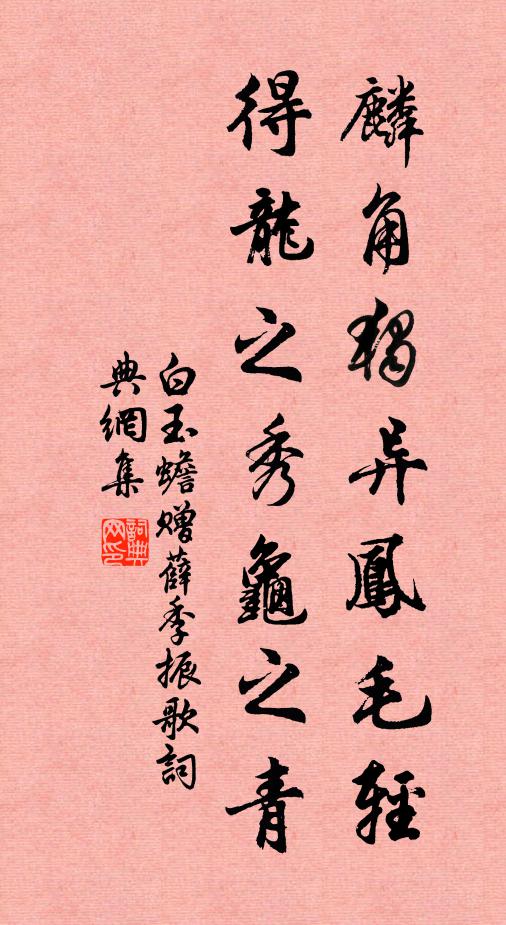 麟角獨异鳳毛輕
得龍之秀龜之青
白玉蟾贈薛季振歌詞
典網集
詞典網印